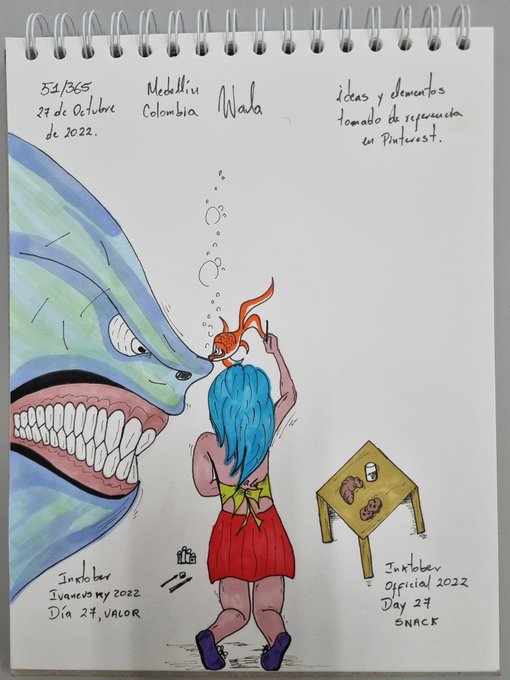 51/365
27 de Octubre
de 2022.
Medellín
Colombia
Wala
ideas y elementos
tomado de referencia
en Pinterest.
Inktober
Ivanevsky 2022
Día 27, VALOR
Inktober
Official 2022
Day 27
SNACK